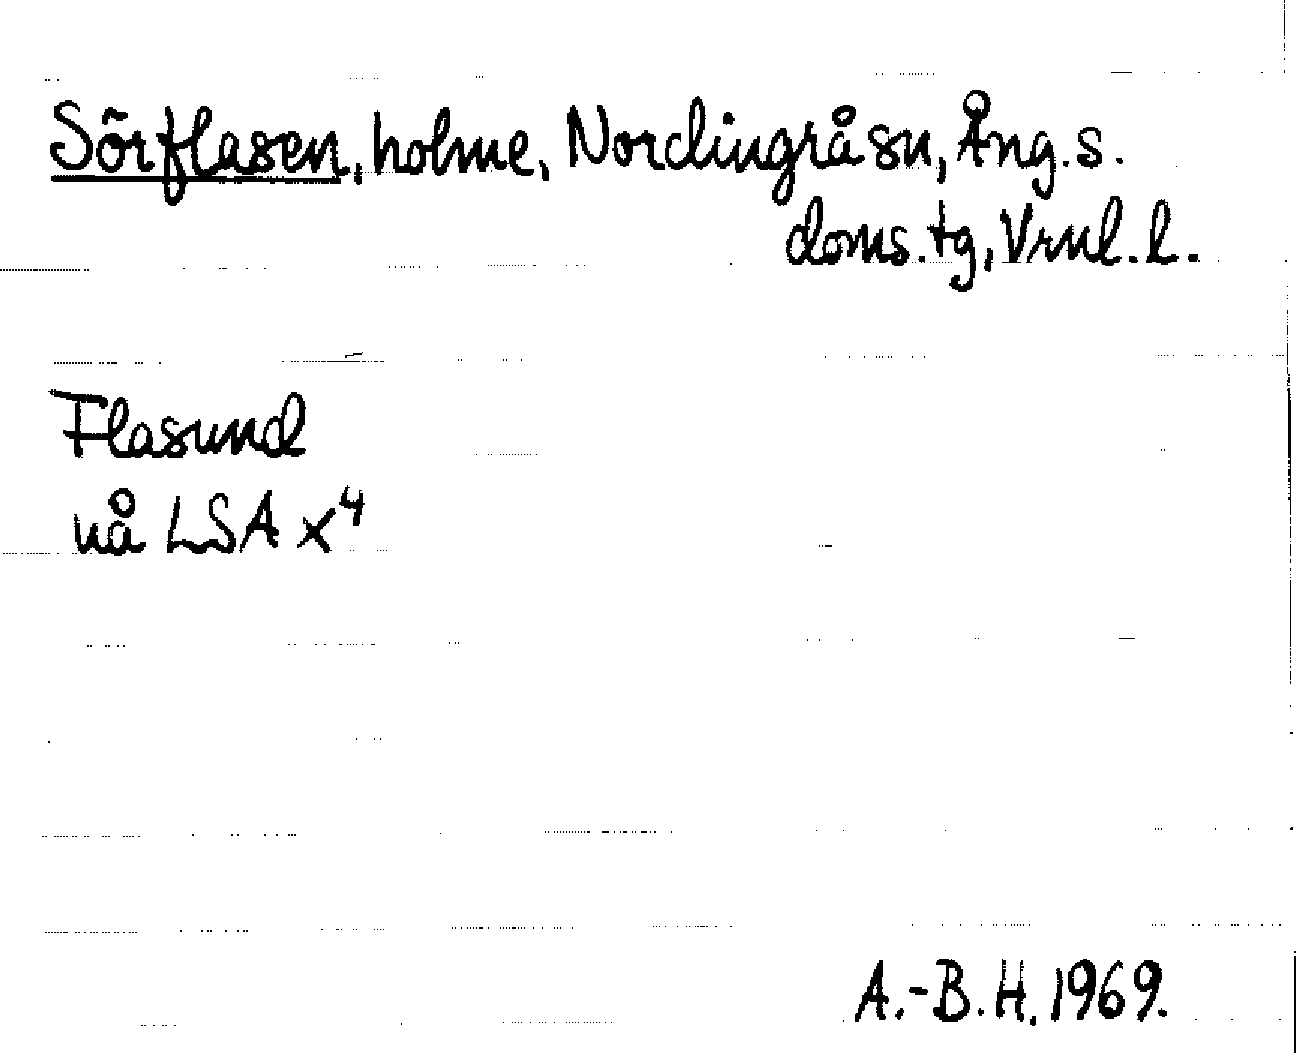 Sörflasen, holme, Nordingrå sn, Ång. s.
doms. tg, Vrnl. l.
Flasund
nå LSA x⁴
A.-B. H. 1969.